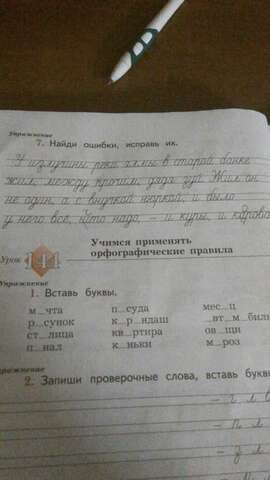 Упражнение
7. Найди ошибки, исправь их.
У излучины реки ямы в старой банке
жил, между прочим, дядя зуй. Жил он
не один, а с внучкой нюркой, и было
у него всё, што надо – и куры, и карова
Урок 141
Учимся применять
орфографические правила
Упражнение
1. Вставь буквы.
м__чта п__суда мес__ц
р__сунок к__р__ндаш __вт__м__биль
ст__лица кв__ртира ов__щи
п__нал к__ньки м__роз
Упражнение
2. Запиши проверочные слова, вставь букв